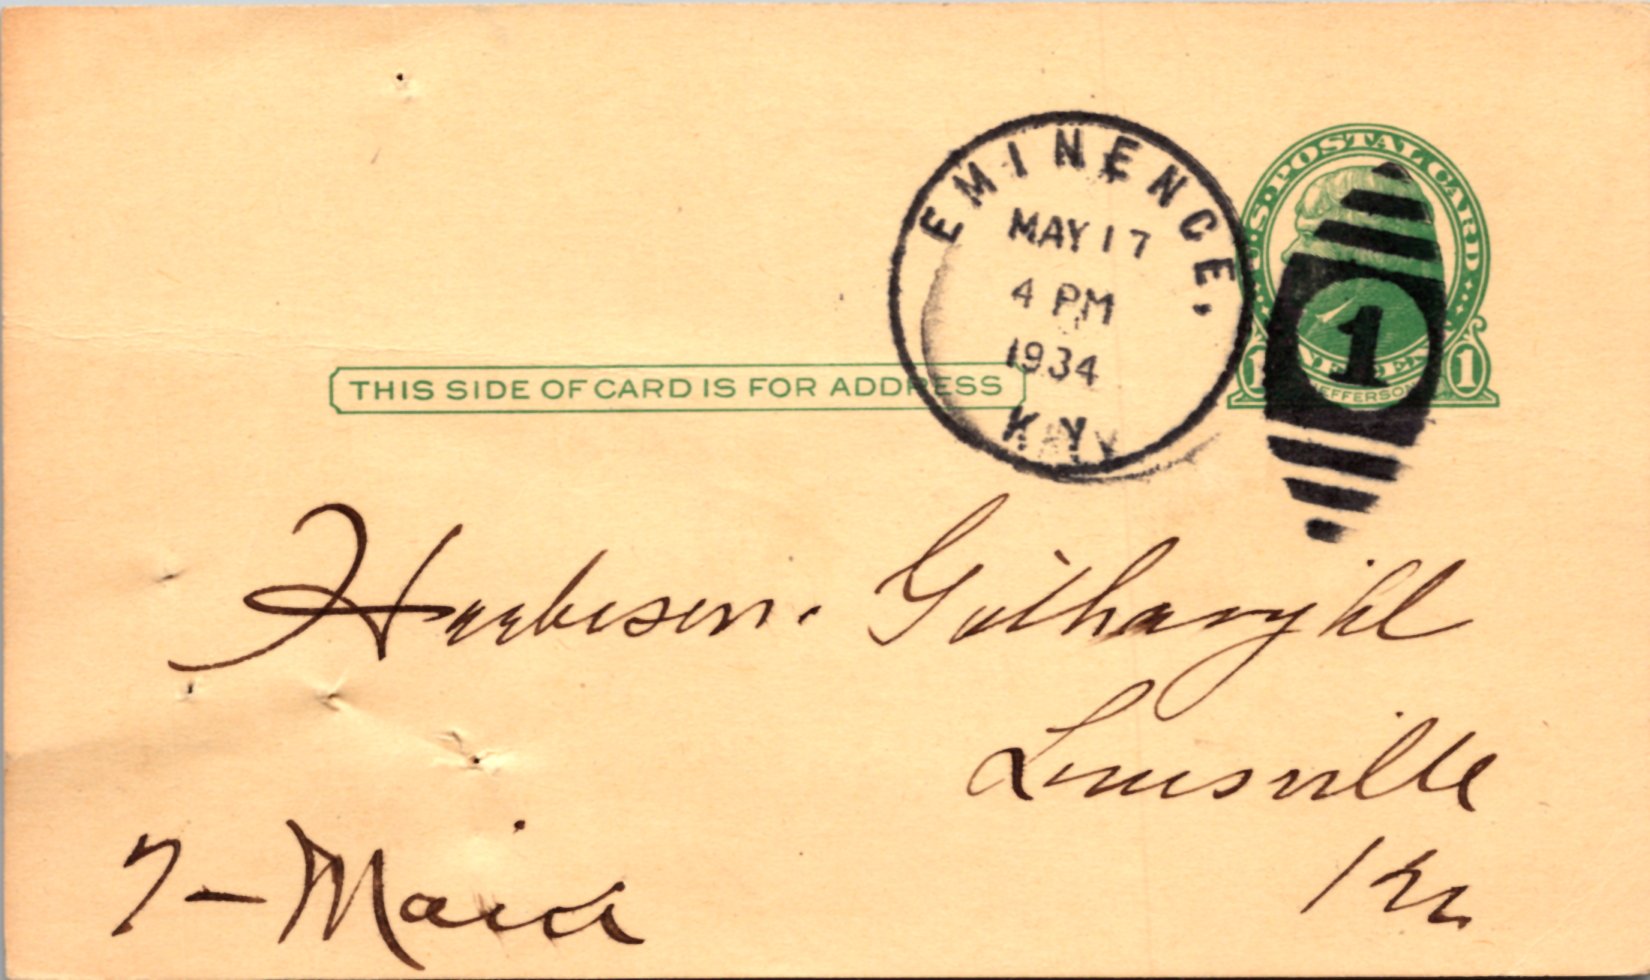 U.S. POSTAL CARD
EMINENCE,
MAY 17
4 PM
1934
KY
1
1 1
JEFFERSON
THIS SIDE OF CARD IS FOR ADDRESS
Harbison. Gathright
Louisville
Ky
7 - Maid